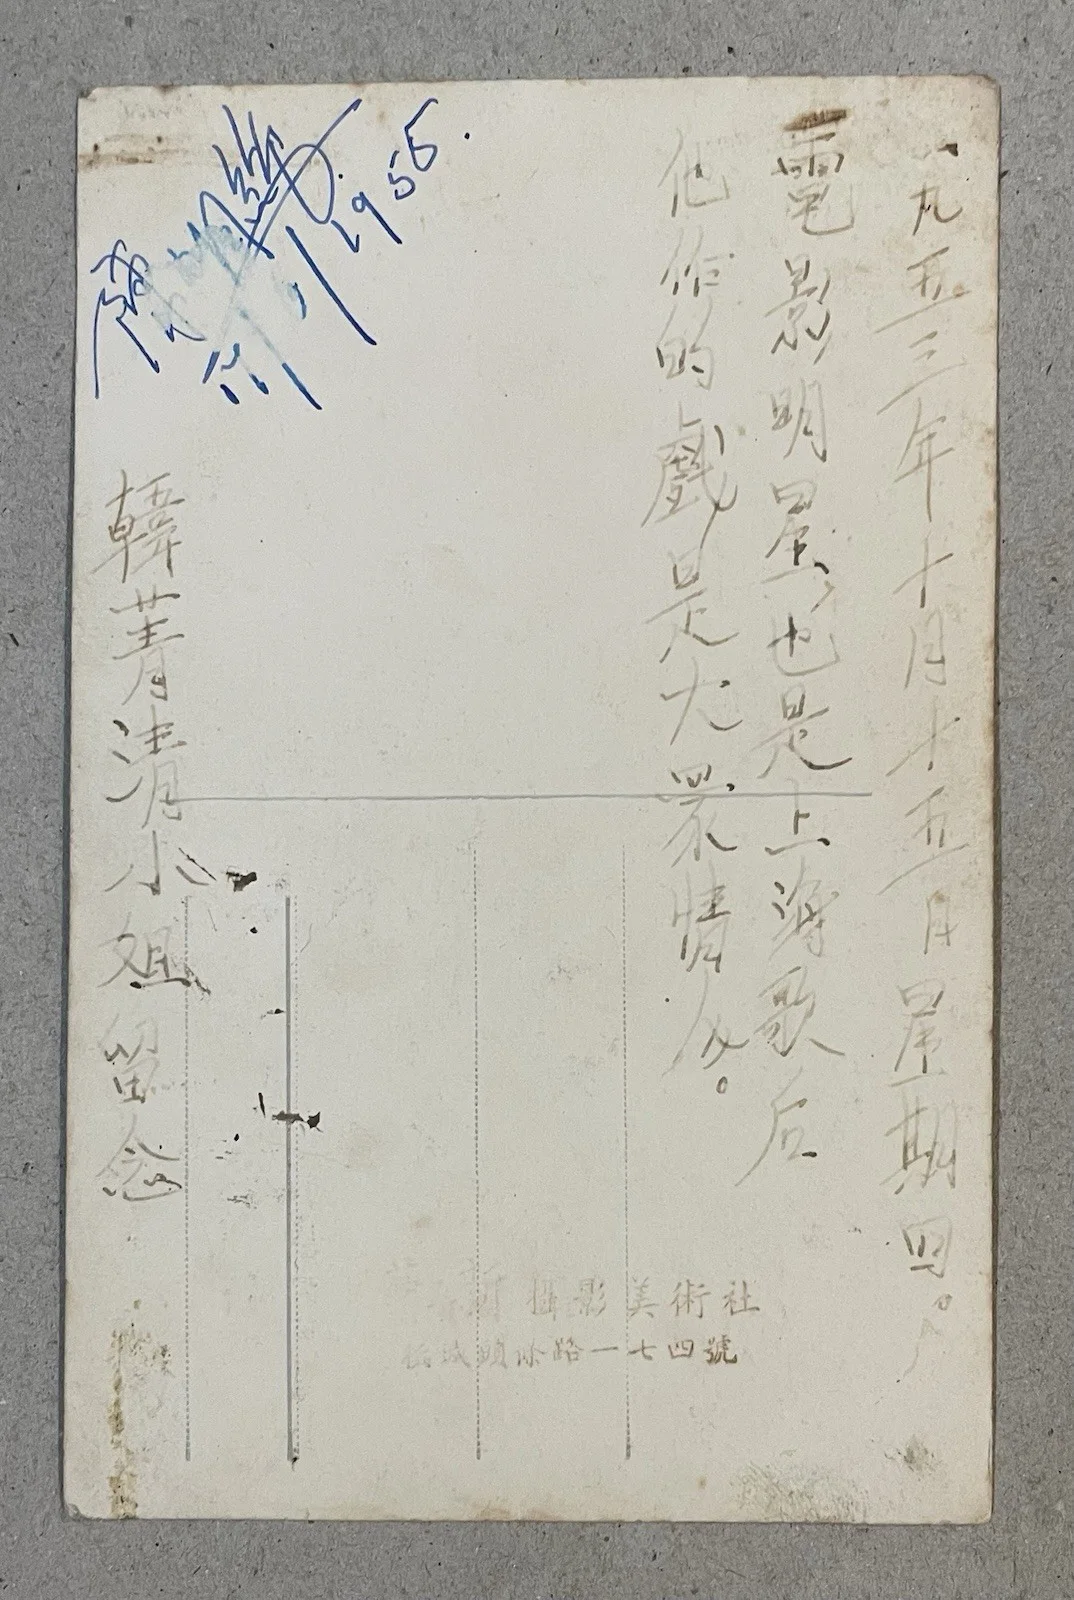 一九五三年十月十五日星期四。
電影明星，也是上海歌后
他作的戲是大眾情人。
韓菁清小姐留念
1955.
攝影美術社
路一七四號